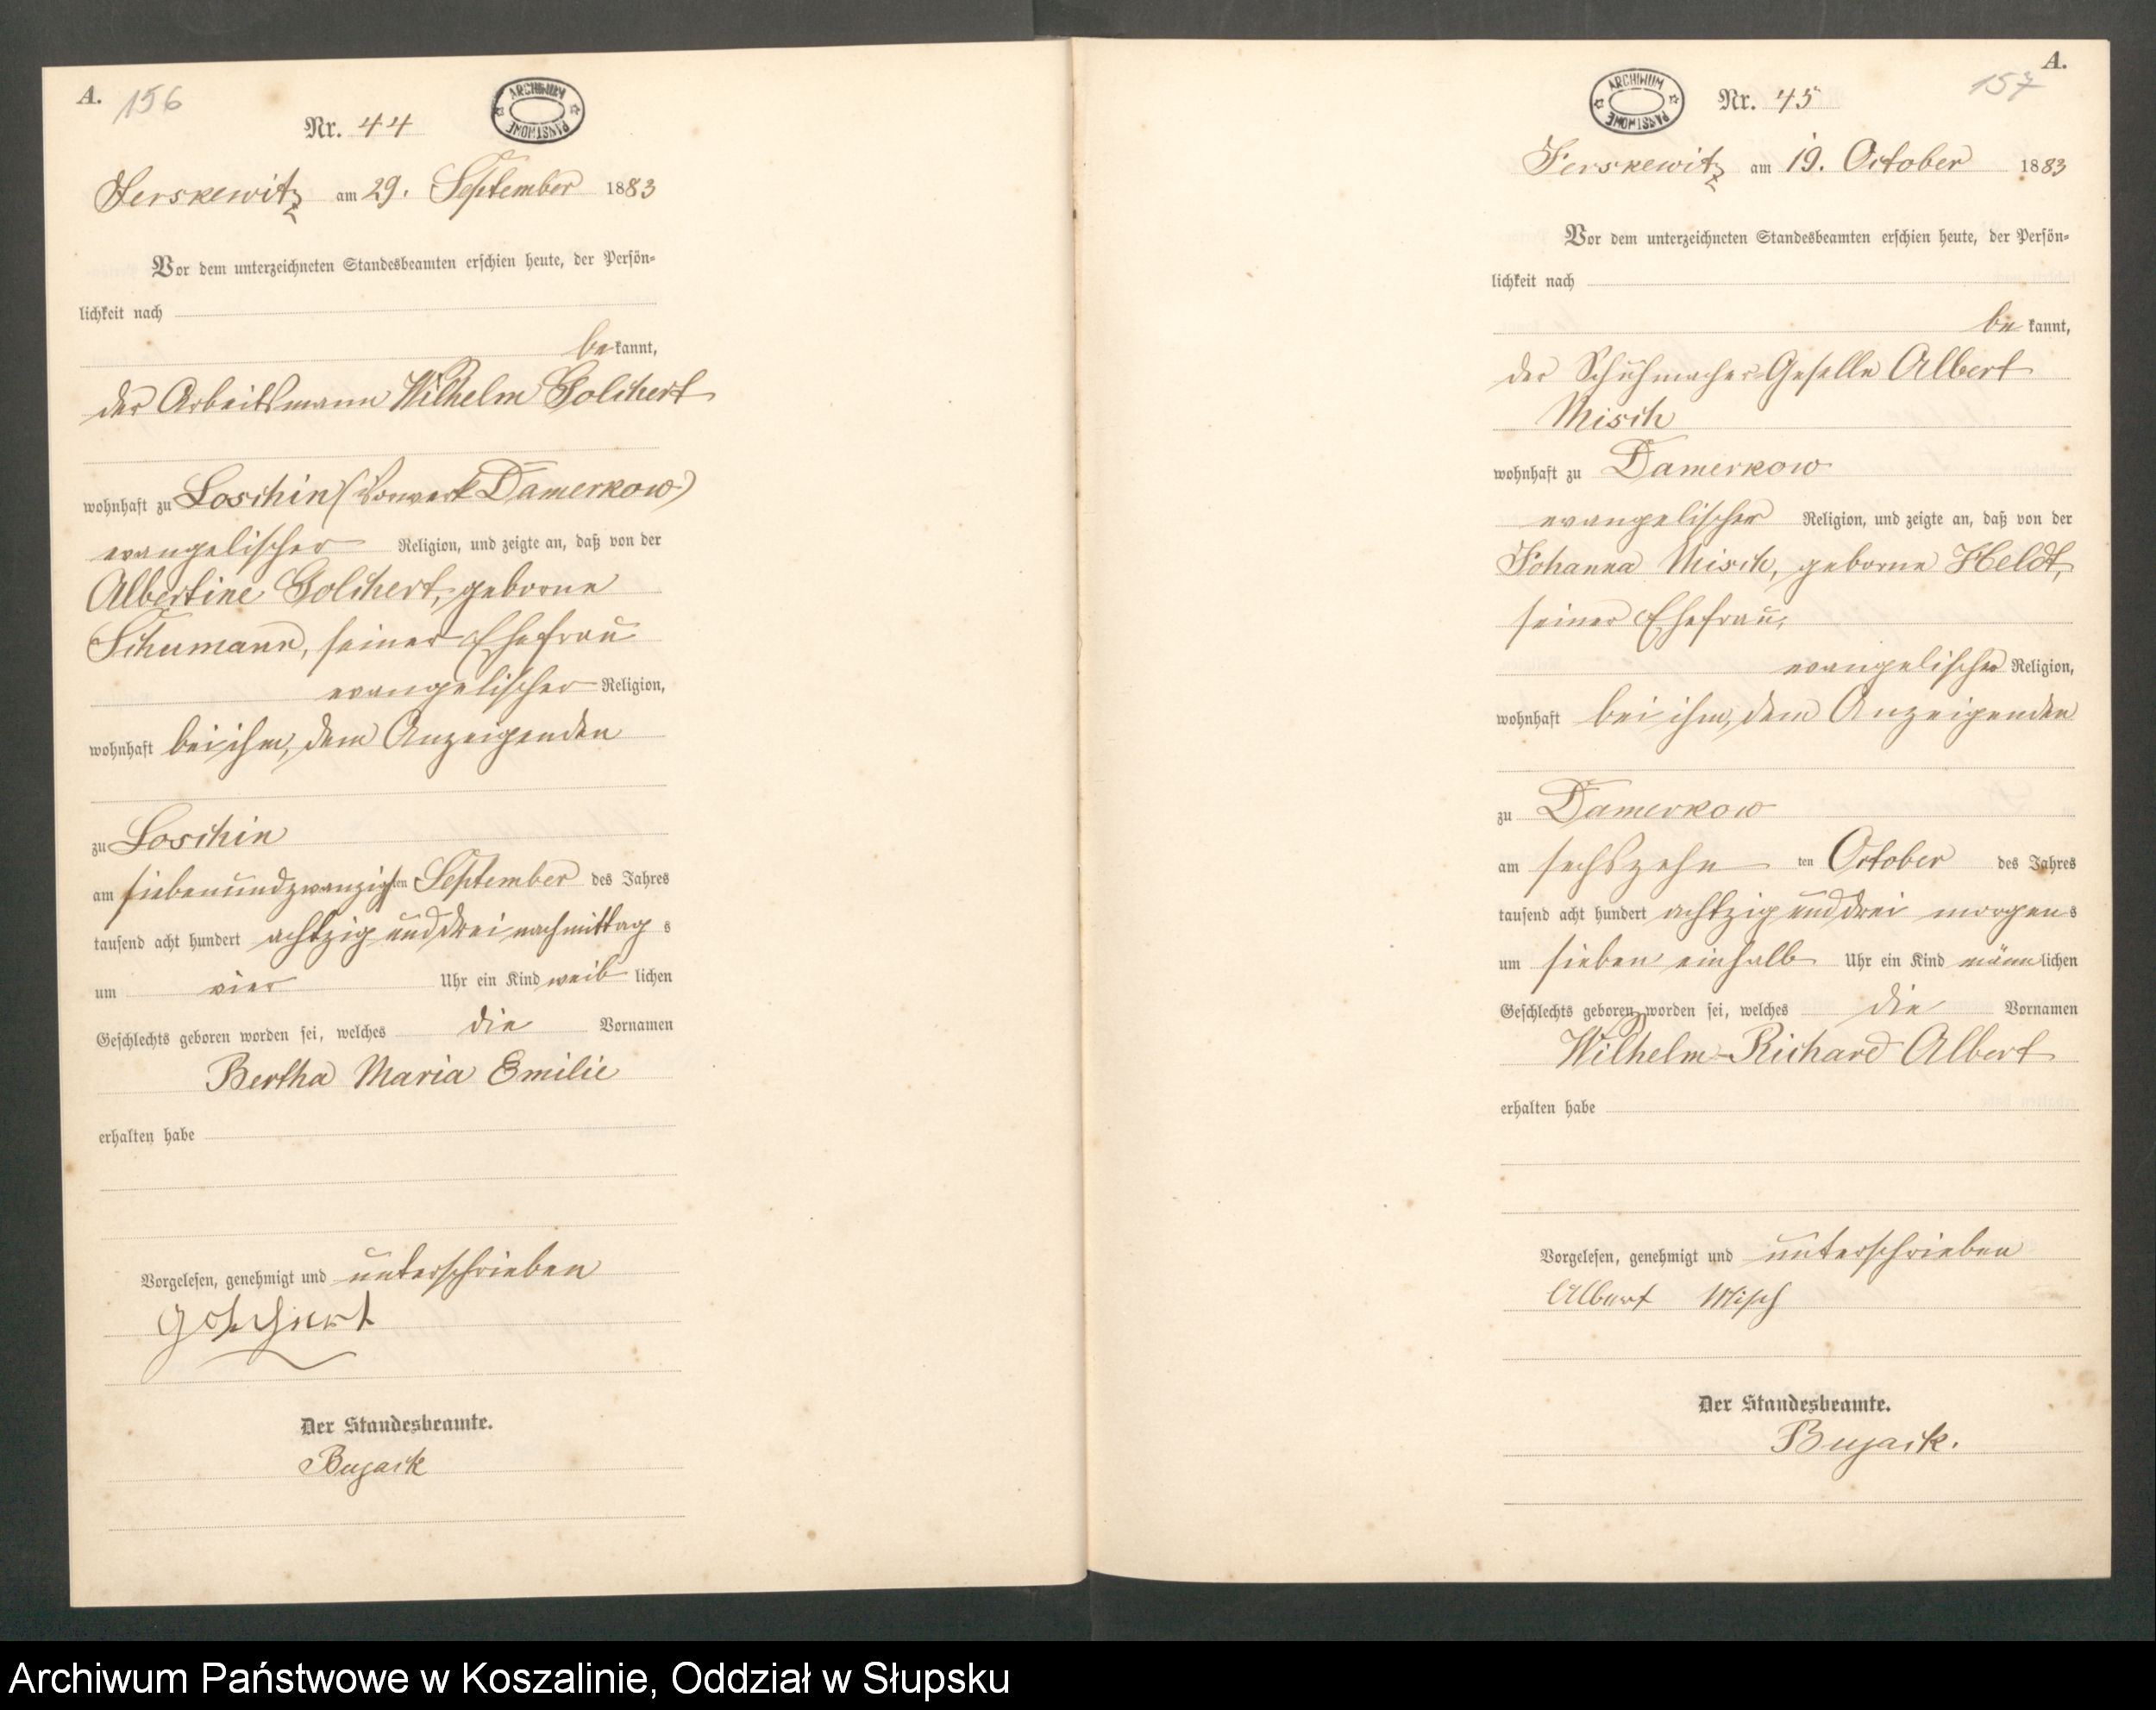 A.
156
Nr. 44
ARCHIWUM PAŃSTWOWE
Jerskewitz am 29. September 1883
Vor dem unterzeichneten Standesbeamten erschien heute, der Persön-
lichkeit nach
be kannt,
der Arbeitsmann Wilhelm Golchert
wohnhaft zu Loschin (Vorwerk Damerkow)
evangelischer Religion, und zeigte an, daß von der
Albertine Golchert, geborne
Schumann, seiner Ehefrau
evangelischer Religion,
wohnhaft bei ihm, dem Anzeigenden
zu Loschin
am siebenundzwanzigsten September des Jahres
tausend acht hundert achtzig und drei nachmittag s
um vier Uhr ein Kind weib lichen
Geschlechts geboren worden sei, welches die Vornamen
Bertha Maria Emilie
erhalten habe
Vorgelesen, genehmigt und unterschrieben
Golchert
Der Standesbeamte.
Bujack
A.
157
ARCHIWUM PAŃSTWOWE
Nr. 45
Jerskewitz am 19. October 1883
Vor dem unterzeichneten Standesbeamten erschien heute, der Persön-
lichkeit nach
be kannt,
der Schuhmacher-Geselle Albert
Misch
wohnhaft zu Damerkow
evangelischer Religion, und zeigte an, daß von der
Johanna Misch, geborne Heldt,
seiner Ehefrau,
evangelischer Religion,
wohnhaft bei ihm, dem Anzeigenden
zu Damerkow
am sechszehn ten October des Jahres
tausend acht hundert achtzig und drei morgens
um sieben einhalb Uhr ein Kind männlichen
Geschlechts geboren worden sei, welches die Vornamen
Wilhelm-Richard Albert
erhalten habe
Vorgelesen, genehmigt und unterschrieben
Albert Misch
Der Standesbeamte.
Bujack.
Archiwum Państwowe w Koszalinie, Oddział w Słupsku